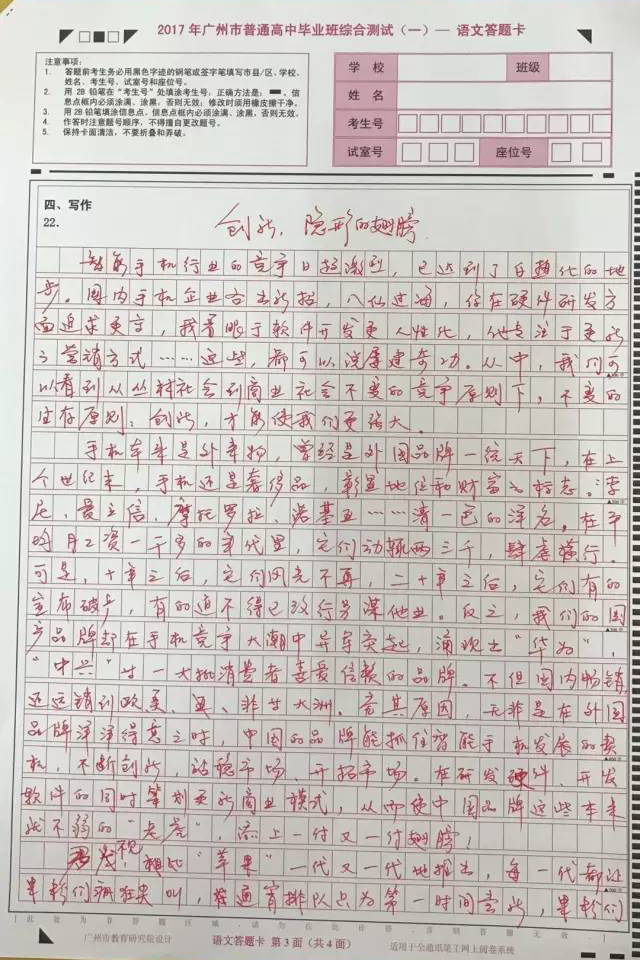 2017 年广州市普通高中毕业班综合测试（一）— 语文答题卡
注意事项：
1. 答题前考生务必用黑色字迹的钢笔或签字笔填写市县/区、学校、
姓名、考生号、试室号和座位号。
2. 用 2B 铅笔在“考生号”处填涂考生号，正确方法是：▬。信
息点框内必须涂满、涂黑，否则无效；修改时须用橡皮擦干净。
3. 用 2B 铅笔填涂信息点，信息点框内必须涂满、涂黑，否则无效。
4. 作答时注意题号顺序，不得擅自更改题号。
5. 保持卡面清洁，不要折叠和弄破。
学 校
班级
姓 名
考生号
试室号
座位号
四、写作
22.
创新，隐形的翅膀
智能手机行业的竞争日趋激烈，已达到了白热化的地
步。国内手机企业各出新招，八仙过海，你在硬件研发方
面追求更高，我着眼于软件开发更人性化，他专注于更新
之营销方式……这些，都可以说屡建奇功。从中，我们可
以看到从丛林社会到商业社会不变的竞争原则下，不变的
生存原则：创新，才能使我们更强大。
手机本来是外来物，曾经是外国品牌一统天下，在上
个世纪末，手机还是奢侈品，彰显地位和财富之标志。
爱立信、摩托罗拉、诺基亚……清一色的洋名。在平
均月工资一千多的年代里，它们动辄两三千，肆虐横行！
可是，十年之后，它们风光不再，二十年之后，它们有的
宣布破产，有的迫不得已改行另谋他业。反之，我们的国
产品牌却在手机竞争大潮中异军突起，涌现出“华为”、
“中兴”等一大批消费者喜爱信赖的品牌。不但国内畅销，
还远销到欧美、亚、非等大洲。究其原因，无非是在外国
品牌洋洋得意之时，中国的品牌能抓住智能手机发展的契
机，不断创新，站稳市场、开拓市场。在研发硬件、开发
软件的同时筹划更新商业模式，从而使中国品牌这些本来
就不弱的“老虎”，添上一付又一付翅膀！
相比“苹果”一代又一代地推出，每一代都让
果粉们疯狂尖叫，普通宵排队只为第一时间尝新，果粉们
此处为非答题区域，请勿在此处作答，否则答题无效。
广州市教育研究院设计
语文答题卡 第 3 面（共 4 面）
适用于全通纸笔王网上阅卷系统